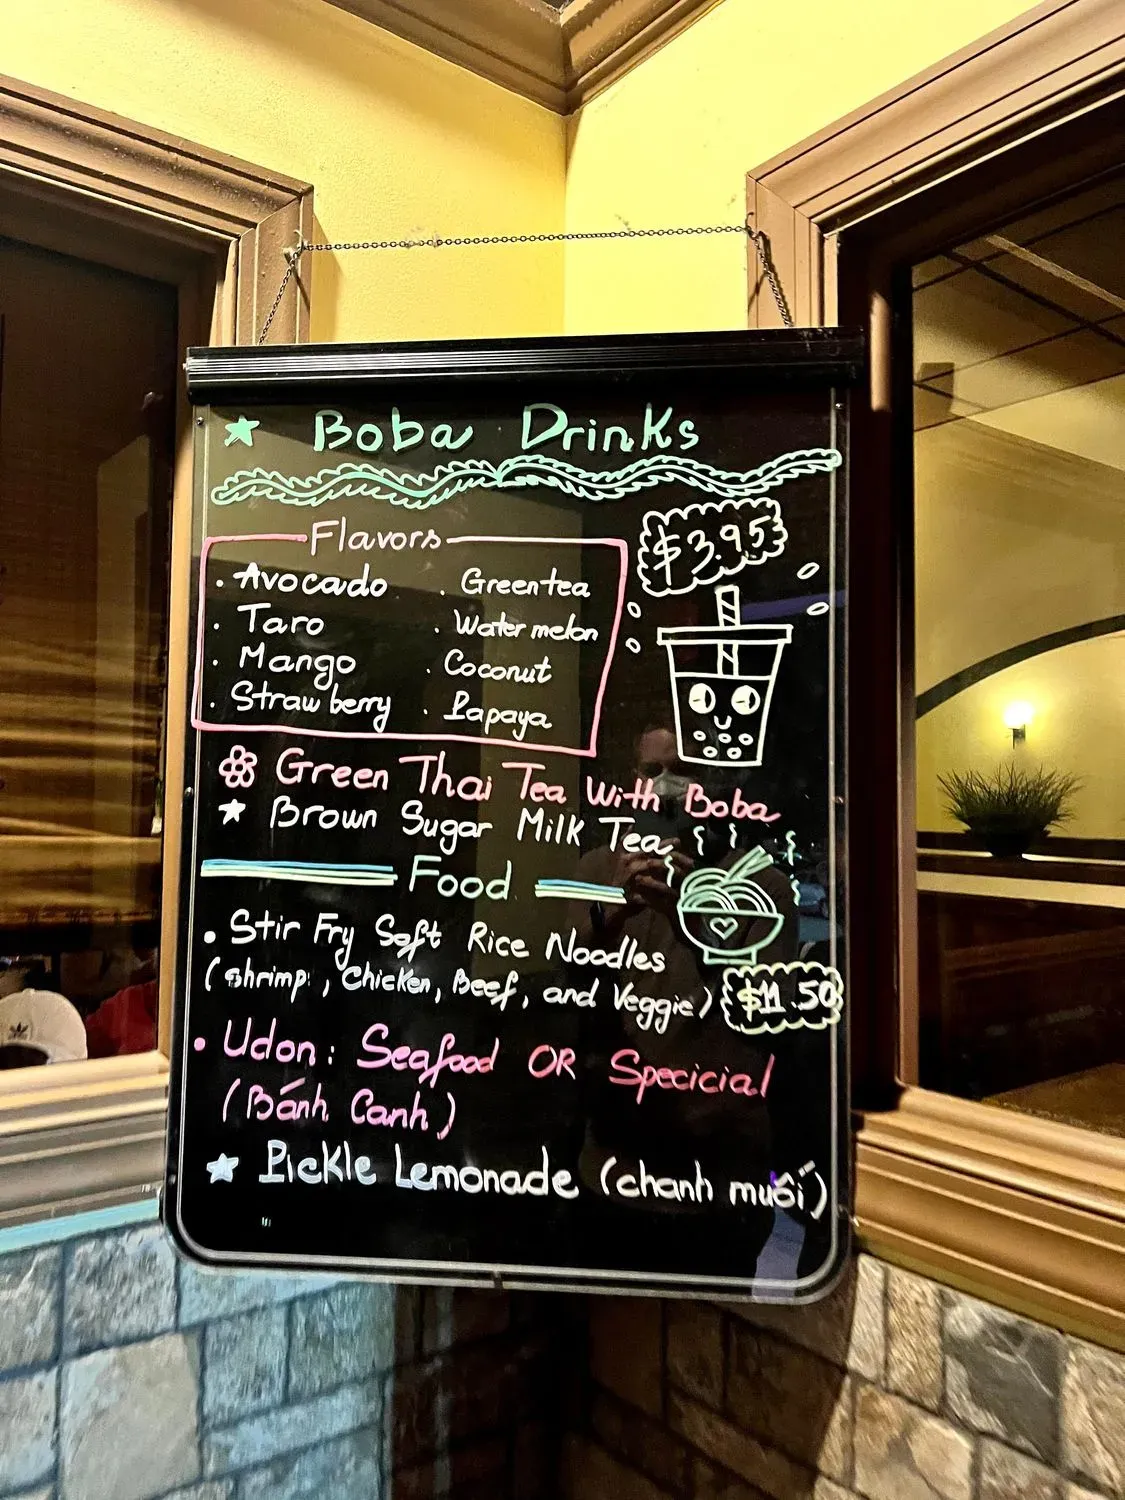 Boba Drinks
$3.95
Flavors
. Avocado . Green tea
. Taro . Water melon
. Mango . Coconut
. Straw berry . Papaya
Green Thai Tea With Boba
Brown Sugar Milk Tea
Food
• Stir Fry Soft Rice Noodles
(shrimp, Chicken, Beef, and Veggie) $11.50
• Udon: Seafood OR Specicial
(Bánh Canh)
Pickle Lemonade (chanh muối)